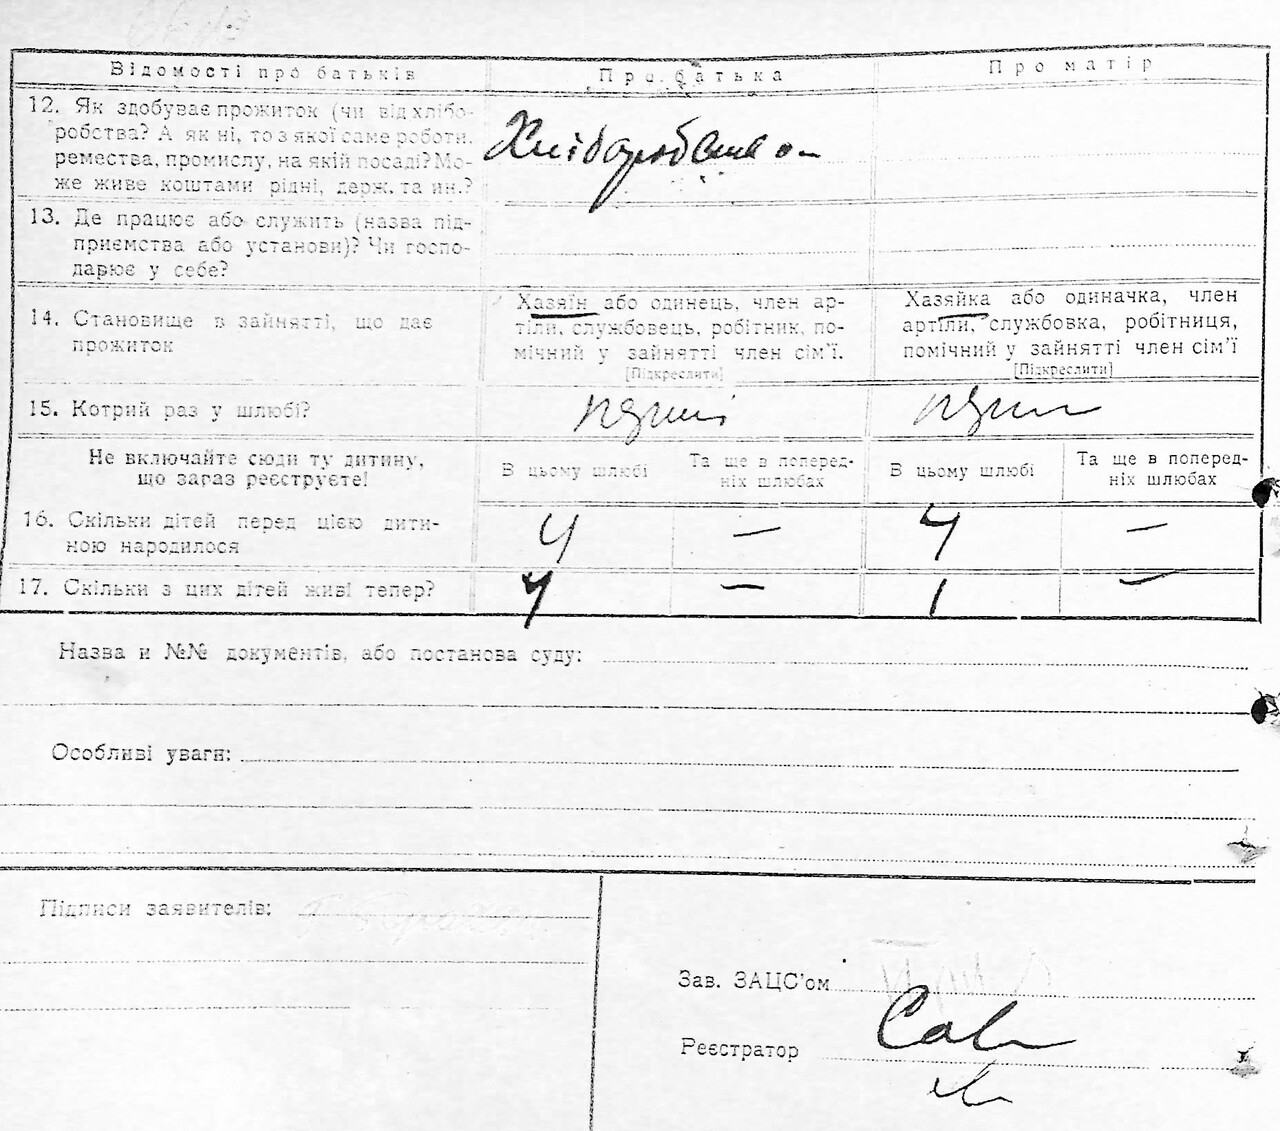 Відомості про батьків
Про батька
Про матір
12. Як здобуває прожиток (чи від хлібо-
робства? А як ні, то з якої саме роботи,
ремества, промислу, на якій посаді? Мо-
же живе коштами рідні, держ. та ин.?
Хліборобством
13. Де працює або служить (назва під-
приємства або установи)? Чи госпо-
дарює у себе?
14. Становище в зайнятті, що дає
прожиток
Хазяїн або одинець, член ар-
тіли, службовець, робітник, по-
мічний у зайнятті член сім'ї.
[Підкреслити]
Хазяйка або одиначка, член
артіли, службовка, робітниця,
помічний у зайнятті член сім'ї
[Підкреслити]
15. Котрий раз у шлюбі?
Не включайте сюди ту дитину,
що зараз реєструєте!
В цьому шлюбі
Та ще в поперед-
ніх шлюбах
В цьому шлюбі
Та ще в поперед-
ніх шлюбах
16. Скільки дітей перед цією дити-
ною народилося
4 — 4 —
17. Скільки з цих дітей живі тепер?
4 — —
Назва и №№ документів, або постанова суду:
Особливі уваги:
Підписи заявителів:
Зав. ЗАЦС'ом
Реєстратор